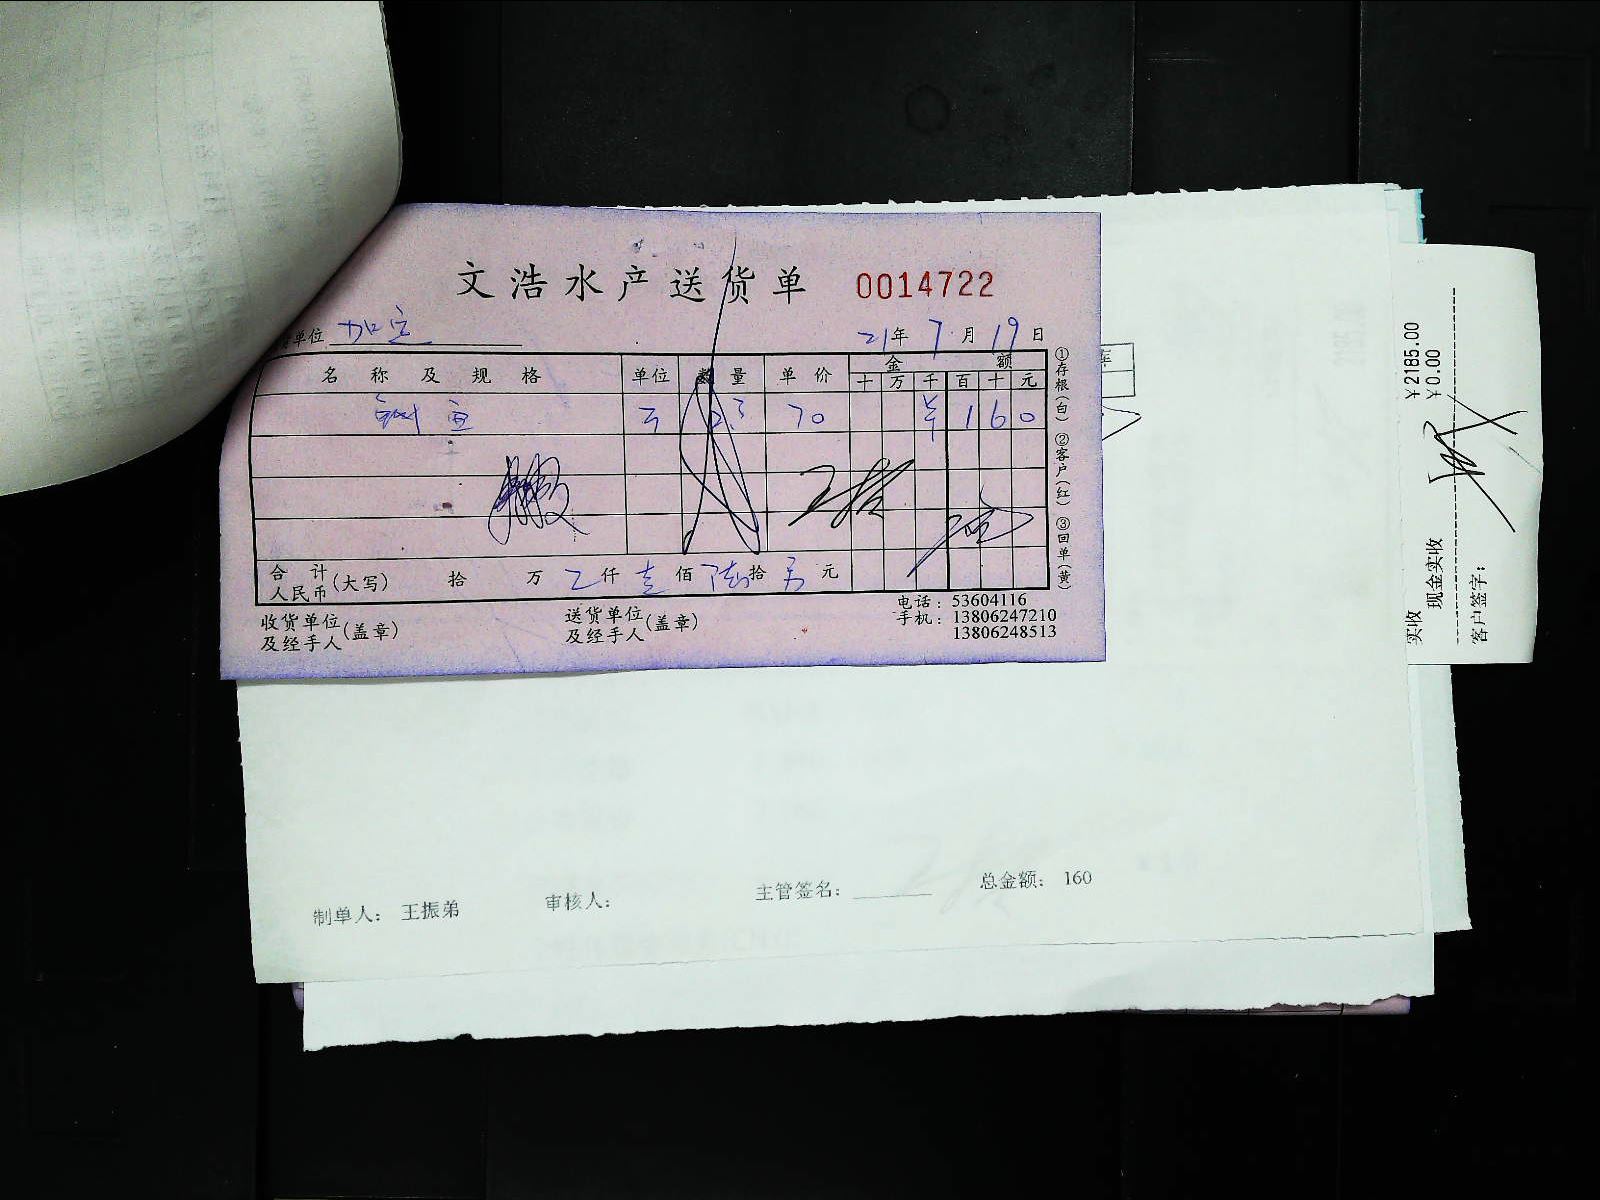 文浩水产送货单 0014722
单位 加宝 21年7月19日
名称及规格 单位 数量 单价 金额
十 万 千 百 十 元
70 ¥ 1 6 0
合计人民币(大写) 拾 万 乙仟 壹佰 陆拾 另元
收货单位及经手人(盖章) 送货单位及经手人(盖章) 电话:53604116
手机:13806247210
13806248513
①存根(白) ②客户(红) ③回单(黄)
制单人: 王振弟 审核人: 主管签名: 总金额: 160
实收 ¥2185.00
现金实收 ¥0.00
客户签字: